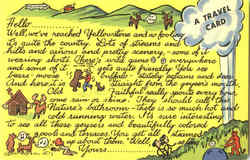 A TRAVEL CARD
Hello
Well, we've reached Yellowstone and no fooling
its quite the country. Lots of streams and
hills and animals and pretty scenery - some of it
wearing shorts. There's wild game everywhere
and some of it gets quite friendly. You see
bears - moose - and
And here it is straight from the geyser's mouth.
Old Faithful really spouts every hour
come rain or shine. They should call this
Nature's bathroom - there is so much hot and
cold running water. It's sure interesting
to see all these geysers and beautifully colored
pools and terraces. You get all steamed
up about them. Well,
Yours